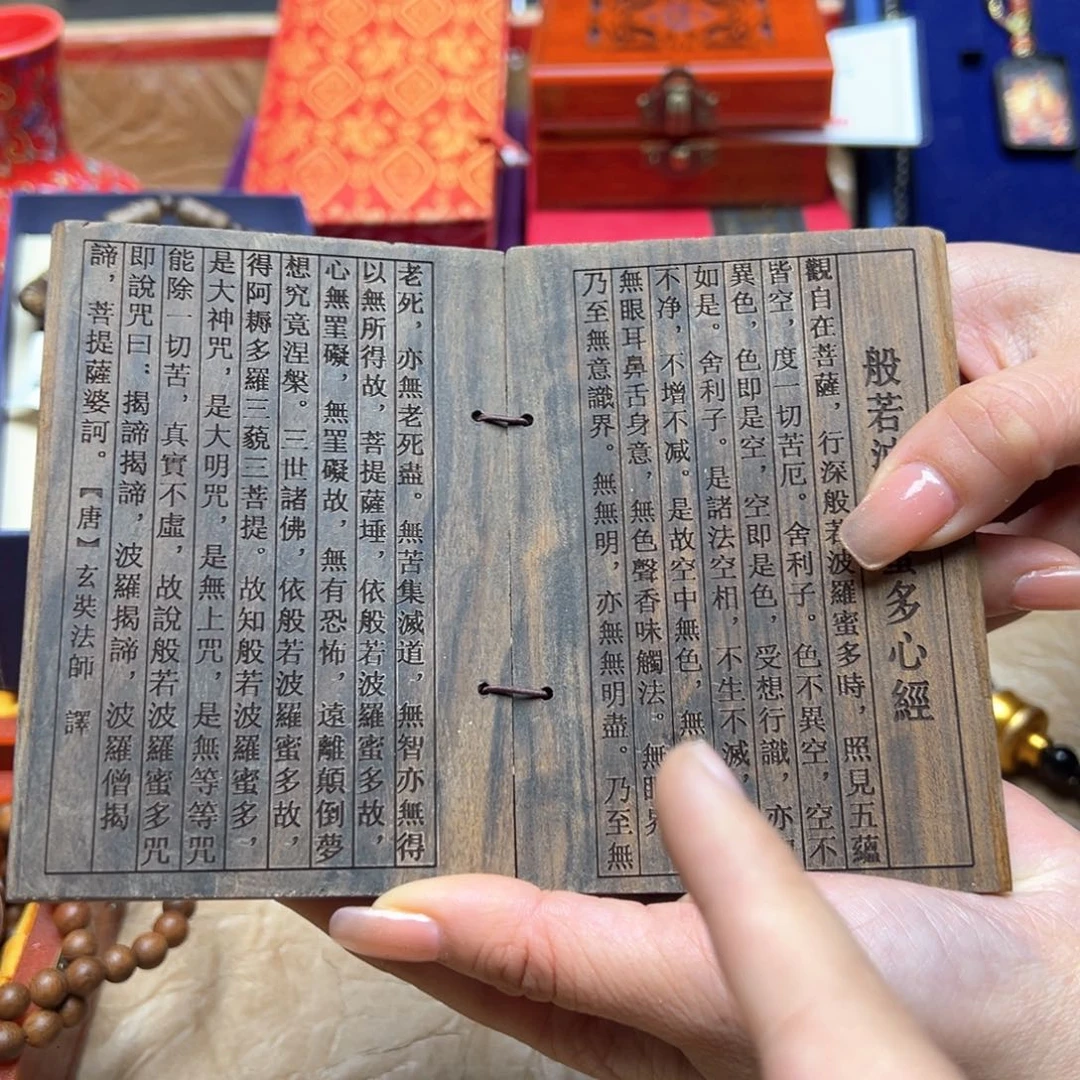 般若波蜜多心經
觀自在菩薩，行深般若波羅蜜多時，照見五蘊
皆空，度一切苦厄。舍利子。色不異空，空不
異色，色即是空，空即是色，受想行識，亦
如是。舍利子。是諸法空相，不生不滅，
不净，不增不减。是故空中無色，無
無眼耳鼻舌身意，無色聲香味觸法。無眼界
乃至無意識界。無無明，亦無無明盡。乃至無
老死，亦無老死盡。無苦集滅道，無智亦無得
以無所得故，菩提薩埵，依般若波羅蜜多故，
心無罣礙，無罣礙故，無有恐怖，遠離顛倒夢
想究竟涅槃。三世諸佛，依般若波羅蜜多故，
得阿耨多羅三藐三菩提。故知般若波羅蜜多，
是大神咒，是大明咒，是無上咒，是無等等咒
能除一切苦，真實不虛，故說般若波羅蜜多咒
即說咒曰：揭諦揭諦，波羅揭諦，波羅僧揭
諦，菩提薩婆訶。【唐】玄奘法師 譯